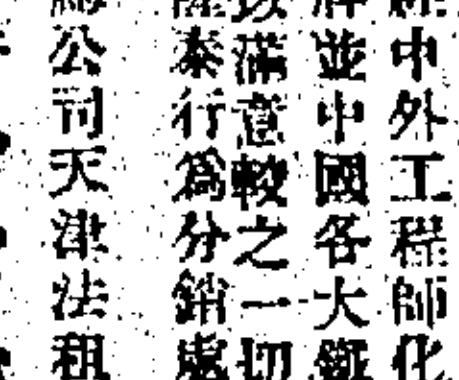 中外工程師化
並中國各大鐵
滿意較之一切
泰行爲分銷處
公司天津法租